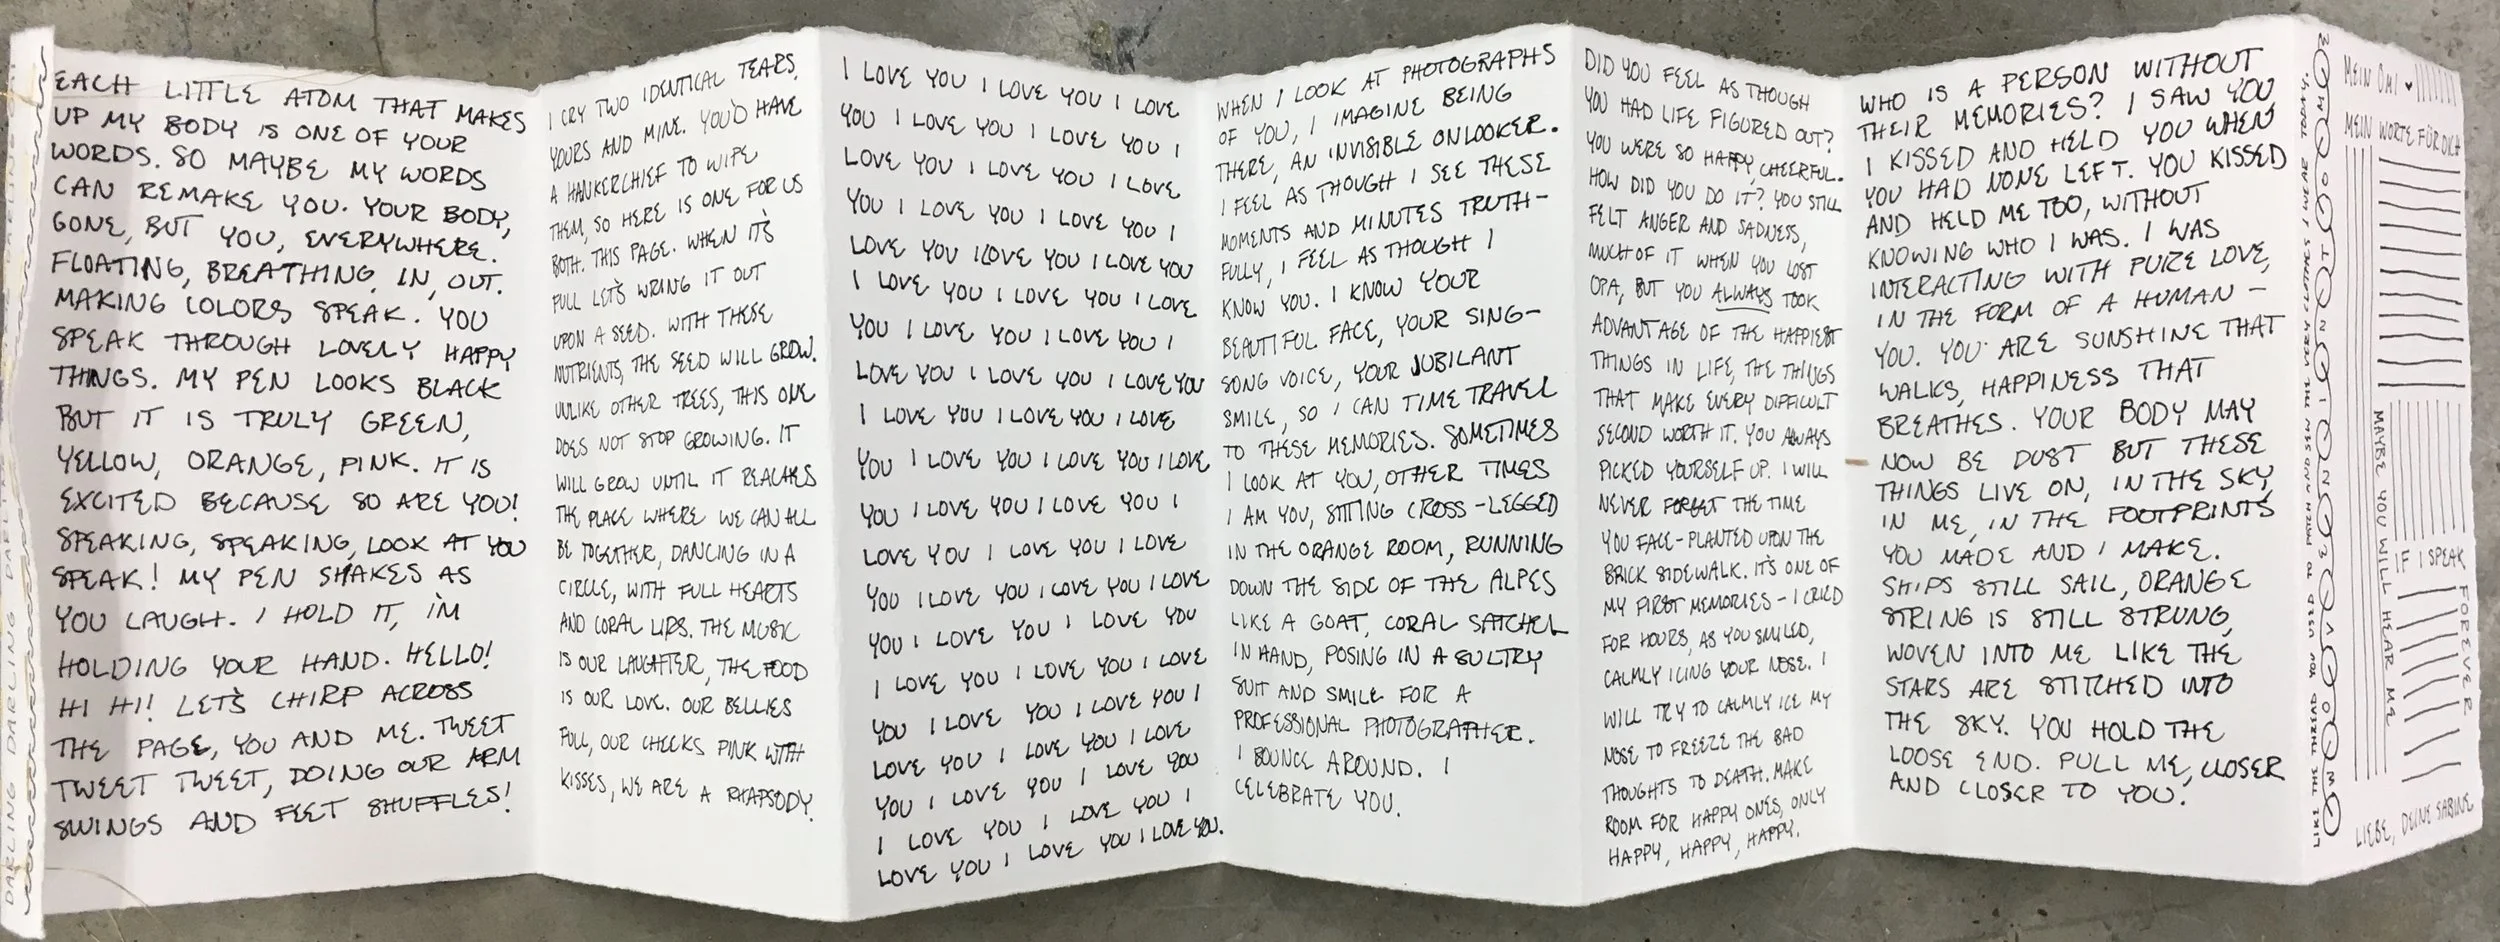 DARLING DARLING DARLING
EACH LITTLE ATOM THAT MAKES
UP MY BODY IS ONE OF YOUR
WORDS. SO MAYBE MY WORDS
CAN REMAKE YOU. YOUR BODY,
GONE, BUT YOU, EVERYWHERE.
FLOATING, BREATHING, IN, OUT.
MAKING COLORS SPEAK. YOU
SPEAK THROUGH LOVELY HAPPY
THINGS. MY PEN LOOKS BLACK
BUT IT IS TRULY GREEN,
YELLOW, ORANGE, PINK. IT IS
EXCITED BECAUSE SO ARE YOU!
SPEAKING, SPEAKING, LOOK AT YOU
SPEAK! MY PEN SHAKES AS
YOU LAUGH. I HOLD IT, I'M
HOLDING YOUR HAND. HELLO!
HI HI! LET'S CHIRP ACROSS
THE PAGE, YOU AND ME. TWEET
TWEET TWEET, DOING OUR ARM
SWINGS AND FEET SHUFFLES!
I CRY TWO IDENTICAL TEARS,
YOURS AND MINE. YOU'D HAVE
A HANKERCHIEF TO WIPE
THEM, SO HERE IS ONE FOR US
BOTH. THIS PAGE. WHEN IT'S
FULL LET'S WRING IT OUT
UPON A SEED. WITH THESE
NUTRIENTS, THE SEED WILL GROW.
UNLIKE OTHER TREES, THIS ONE
DOES NOT STOP GROWING. IT
WILL GROW UNTIL IT REACHES
THE PLACE WHERE WE CAN ALL
BE TOGETHER, DANCING IN A
CIRCLE, WITH FULL HEARTS
AND CORAL LIPS. THE MUSIC
IS OUR LAUGHTER, THE FOOD
IS OUR LOVE. OUR BELLIES
FULL, OUR CHEEKS PINK WITH
KISSES, WE ARE A RHAPSODY.
I LOVE YOU I LOVE YOU I LOVE
YOU I LOVE YOU I LOVE YOU I
LOVE YOU I LOVE YOU I LOVE
YOU I LOVE YOU I LOVE YOU I
LOVE YOU I LOVE YOU I LOVE YOU
I LOVE YOU I LOVE YOU I LOVE
YOU I LOVE YOU I LOVE YOU I
LOVE YOU I LOVE YOU I LOVE YOU
I LOVE YOU I LOVE YOU I LOVE
YOU I LOVE YOU I LOVE YOU I LOVE
YOU I LOVE YOU I LOVE YOU I
LOVE YOU I LOVE YOU I LOVE
YOU I LOVE YOU I LOVE YOU I LOVE
YOU I LOVE YOU I LOVE YOU
I LOVE YOU I LOVE YOU I LOVE
YOU I LOVE YOU I LOVE YOU I
LOVE YOU I LOVE YOU I LOVE
YOU I LOVE YOU I LOVE YOU
I LOVE YOU I LOVE YOU I
LOVE YOU I LOVE YOU I LOVE YOU.
WHEN I LOOK AT PHOTOGRAPHS
OF YOU, I IMAGINE BEING
THERE, AN INVISIBLE ONLOOKER.
I FEEL AS THOUGH I SEE THESE
MOMENTS AND MINUTES TRUTH-
FULLY, I FEEL AS THOUGH I
KNOW YOU. I KNOW YOUR
BEAUTIFUL FACE, YOUR SING-
SONG VOICE, YOUR JUBILANT
SMILE, SO I CAN TIME TRAVEL
TO THESE MEMORIES. SOMETIMES
I LOOK AT YOU, OTHER TIMES
I AM YOU, SITTING CROSS-LEGGED
IN THE ORANGE ROOM, RUNNING
DOWN THE SIDE OF THE ALPES
LIKE A GOAT, CORAL SATCHEL
IN HAND, POSING IN A SULTRY
SUIT AND SMILE FOR A
PROFESSIONAL PHOTOGRAPHER.
I BOUNCE AROUND. I
CELEBRATE YOU.
DID YOU FEEL AS THOUGH
YOU HAD LIFE FIGURED OUT?
YOU WERE SO HAPPY, CHEERFUL.
HOW DID YOU DO IT? YOU STILL
FELT ANGER AND SADNESS,
MUCH OF IT WHEN YOU LOST
OPA, BUT YOU ALWAYS TOOK
ADVANTAGE OF THE HAPPIEST
THINGS IN LIFE, THE THINGS
THAT MAKE EVERY DIFFICULT
SECOND WORTH IT. YOU ALWAYS
PICKED YOURSELF UP. I WILL
NEVER FORGET THE TIME
YOU FACE-PLANTED UPON THE
BRICK SIDEWALK. IT'S ONE OF
MY FIRST MEMORIES - I CRIED
FOR HOURS, AS YOU SMILED,
CALMLY ICING YOUR NOSE. I
WILL TRY TO CALMLY ICE MY
NOSE TO FREEZE THE BAD
THOUGHTS TO DEATH. MAKE
ROOM FOR HAPPY ONES, ONLY
HAPPY, HAPPY, HAPPY.
WHO IS A PERSON WITHOUT
THEIR MEMORIES? I SAW YOU,
I KISSED AND HELD YOU WHEN
YOU HAD NONE LEFT. YOU KISSED
AND HELD ME TOO, WITHOUT
KNOWING WHO I WAS. I WAS
INTERACTING WITH PURE LOVE,
IN THE FORM OF A HUMAN -
YOU. YOU ARE SUNSHINE THAT
WALKS, HAPPINESS THAT
BREATHES. YOUR BODY MAY
NOW BE DUST BUT THESE
THINGS LIVE ON, IN THE SKY,
IN ME, IN THE FOOTPRINTS
YOU MADE AND I MAKE.
SHIPS STILL SAIL, ORANGE
STRING IS STILL STRUNG,
WOVEN INTO ME LIKE THE
STARS ARE STITCHED INTO
THE SKY. YOU HOLD THE
LOOSE END. PULL ME, CLOSER
AND CLOSER TO YOU.
LIKE THE THREAD YOU USED TO PATCH AND MEND THE VERY CLOTHES I WEAR TODAY.
MEIN OMI
MEIN WORTE FÜR DICH
MAYBE YOU WILL HEAR ME
IF I SPEAK
FOREVER
LIEBE, DEINE SABINE